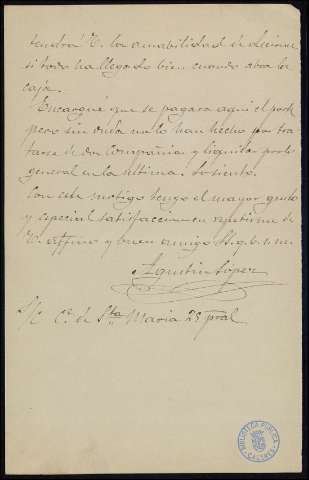 tendrá V. la amabilidad de decirme
si todo ha llegado bien cuando abra la
caja.
Encargué que se pagara aquí el port
pero sin duda no lo han hecho por tra
tarse de dos Compañías y liquidar por lo
general en la última. Lo siento.
Con este motivo tengo el mayor gusto
y especial satisfacción en repetirme de
V. affmo y buen amigo q. b. s. m.
Agustín López
S/C C. de Sta María 25 pral
BIBLIOTECA PUBLICA
CACERES